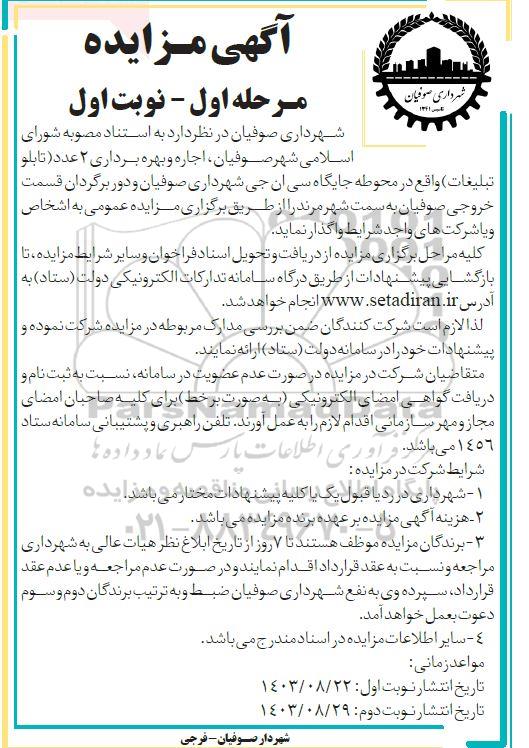 آگهی مزایده
مرحله اول - نوبت اول
شهرداری صوفیان
تاسیس ۱۳۴۱
شهرداری صوفیان در نظر دارد به استناد مصوبه شورای
اسلامی شهر صوفیان، اجاره و بهره برداری ۲ عدد (تابلو
تبلیغات) واقع در محوطه جایگاه سی ان جی شهرداری صوفیان و دور برگردان قسمت
خروجی صوفیان به سمت شهر مرند را از طریق برگزاری مزایده عمومی به اشخاص
و یا شرکت های واجد شرایط واگذار نماید.
کلیه مراحل برگزاری مزایده از دریافت و تحویل اسناد فراخوان و سایر شرایط مزایده، تا
بازگشایی پیشنهادات از طریق درگاه سامانه تدارکات الکترونیکی دولت (ستاد) به
آدرس www.setadiran.ir انجام خواهد شد.
لذا لازم است شرکت کنندگان ضمن بررسی مدارک مربوطه در مزایده شرکت نموده و
پیشنهادات خود را در سامانه دولت (ستاد) ارائه نمایند.
متقاضیان شرکت در مزایده در صورت عدم عضویت در سامانه، نسبت به ثبت نام و
دریافت گواهی امضای الکترونیکی (به صورت بر خط) برای کلیه صاحبان امضای
مجاز و مهر سازمانی اقدام لازم را به عمل آورند. تلفن راهبری و پشتیبانی سامانه ستاد
۱۴۵۶ می باشد.
شرایط شرکت در مزایده:
۱- شهرداری در رد یا قبول یک یا کلیه پیشنهادات مختار می باشد.
۲- هزینه آگهی مزایده بر عهده برنده مزایده می باشد.
۳- برندگان مزایده موظف هستند تا ۷ روز از تاریخ ابلاغ نظر هیات عالی به شهرداری
مراجعه و نسبت به عقد قرارداد اقدام نمایند و در صورت عدم مراجعه و یا عدم عقد
قرارداد، سپرده وی به نفع شهرداری صوفیان ضبط و به ترتیب برندگان دوم و سوم
دعوت بعمل خواهد آمد.
۴- سایر اطلاعات مزایده در اسناد مندرج می باشد.
مواعد زمانی:
تاریخ انتشار نوبت اول: ۱۴۰۳/۰۸/۲۲
تاریخ انتشار نوبت دوم: ۱۴۰۳/۰۸/۲۹
شهردار صوفیان - فرجی